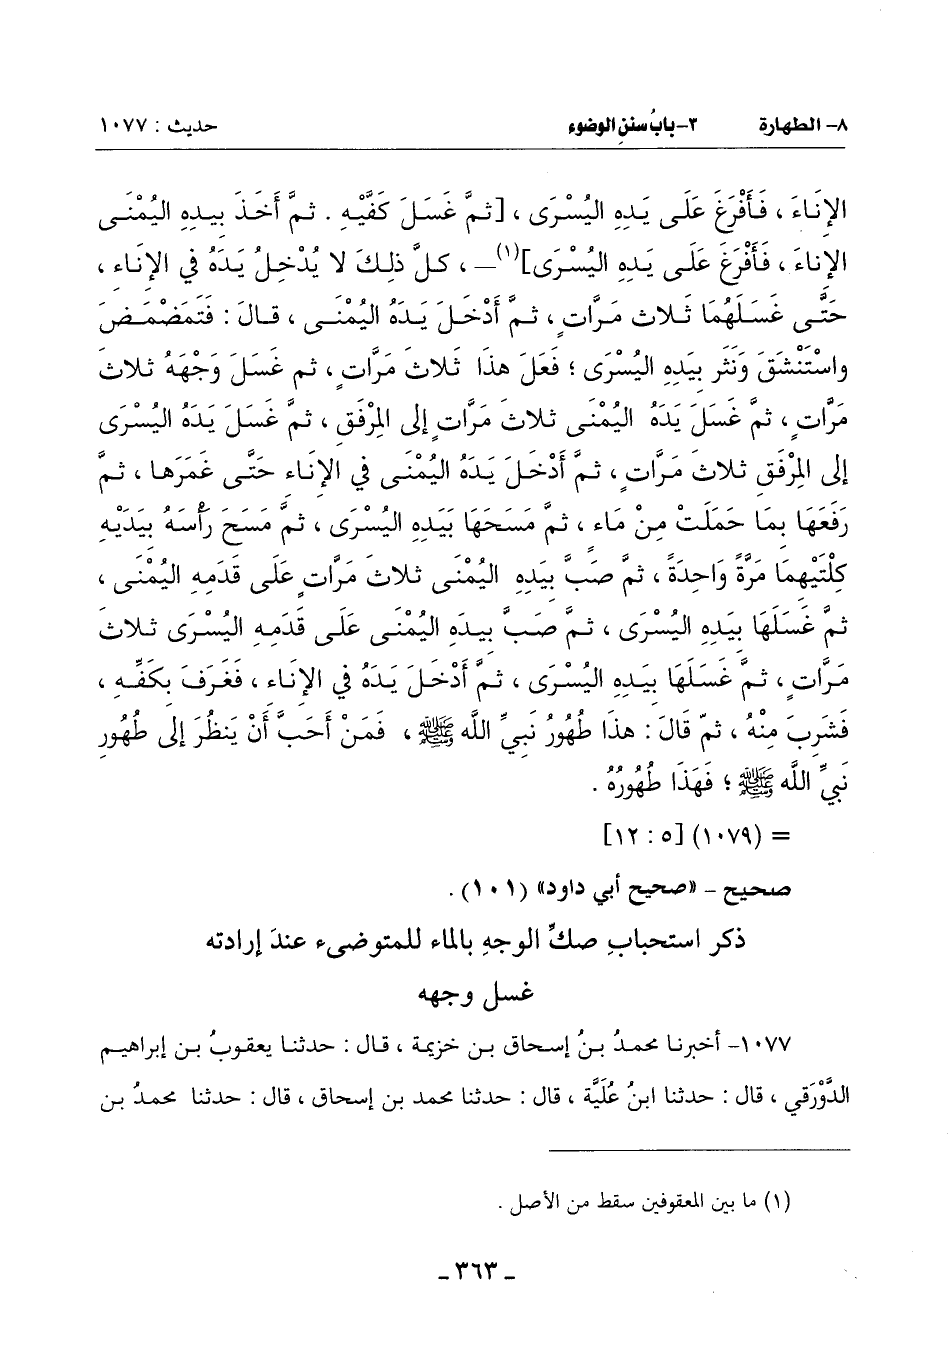 ٨- الطهارة ٣- بابُ سننِ الوضوء حديث : ١٠٧٧
الإنَاءَ ، فَأَفْرَغَ عَلَى يَدِهِ اليُسْرَى ، [ثمَّ غَسَلَ كَفَّيْهِ . ثمَّ أَخَذَ بيدِهِ اليُمْنَى
الإناءَ ، فَأَفْرَغَ عَلَى يَدِهِ اليُسْرَى](١) – ، كلَّ ذلِكَ لا يُدْخِلُ يَدَهُ في الإناءِ ،
حَتَّى غَسَلَهُمَا ثَلاثَ مَرَّاتٍ ، ثمَّ أَدْخَلَ يَدَهُ اليُمْنَى ، قالَ : فَتَمَضْمَضَ
واسْتَنْشَقَ وَنَثَر بيَدِهِ اليُسْرَى ؛ فَعَلَ هذا ثَلاثَ مَرَّاتٍ ، ثم غَسَلَ وَجْهَهُ ثلاثَ
مَرَّاتٍ ، ثمَّ غَسَلَ يَدَهُ اليُمْنَى ثلاثَ مَرَّاتٍ إلى المِرْفَقِ ، ثمَّ غَسَلَ يَدَهُ اليُسْرَى
إلى المِرْفَقِ ثلاثَ مَرَّاتٍ ، ثمَّ أَدْخَلَ يَدَهُ اليُمْنَى في الإنَاءِ حَتَّى غَمَرَها ، ثمَّ
رَفَعَهَا بمَا حَمَلَتْ مِنْ مَاءٍ ، ثمَّ مَسَحَهَا بَيَدِهِ اليُسْرَى ، ثمَّ مَسَحَ رَأْسَهُ بيَدَيْهِ
كِلْتَيْهِمَا مَرَّةً وَاحِدَةً ، ثمَّ صَبَّ بيَدِهِ اليُمْنَى ثلاثَ مَرَّاتٍ عَلَى قَدَمِهِ اليُمْنَى ،
ثمَّ غَسَلَهَا بيَدِهِ اليُسْرَى ، ثمَّ صَبَّ بيدِهِ اليُمْنَى عَلَى قَدَمِهِ اليُسْرَى ثلاثَ
مَرَّاتٍ ، ثمَّ غسَلَهَا بيدِهِ اليُسْرَى ، ثمَّ أَدْخَلَ يَدَهُ في الإناءِ ، فَغَرَفَ بكَفِّهِ ،
فَشَرِبَ مِنْهُ ، ثمّ قَالَ : هذا طُهُورُ نَبيِّ اللَّه ﷺ ، فَمَنْ أَحَبَّ أَنْ يَنظُرَ إلى طُهُورِ
نَبيِّ اللَّه ﷺ ؛ فَهَذا طُهُورُهُ .
= (١٠٧٩) [٥ : ١٢]
صحيح – «صحيح أبي داود» (١٠١) .
ذكر استحبابِ صكِّ الوجهِ بالماء للمتوضىء عندَ إرادته
غسل وجهه
١٠٧٧- أخبرنا محمدُ بنُ إسحاق بن خزيمة ، قال : حدثنا يعقوبُ بن إبراهيم
الدَّوْرَقي ، قال : حدثنا ابنُ عُلَيَّة ، قال : حدثنا محمد بن إسحاق ، قال : حدثنا محمدُ بن
(١) ما بين المعقوفين سقط من الأصل .
- ٣٦٣ -